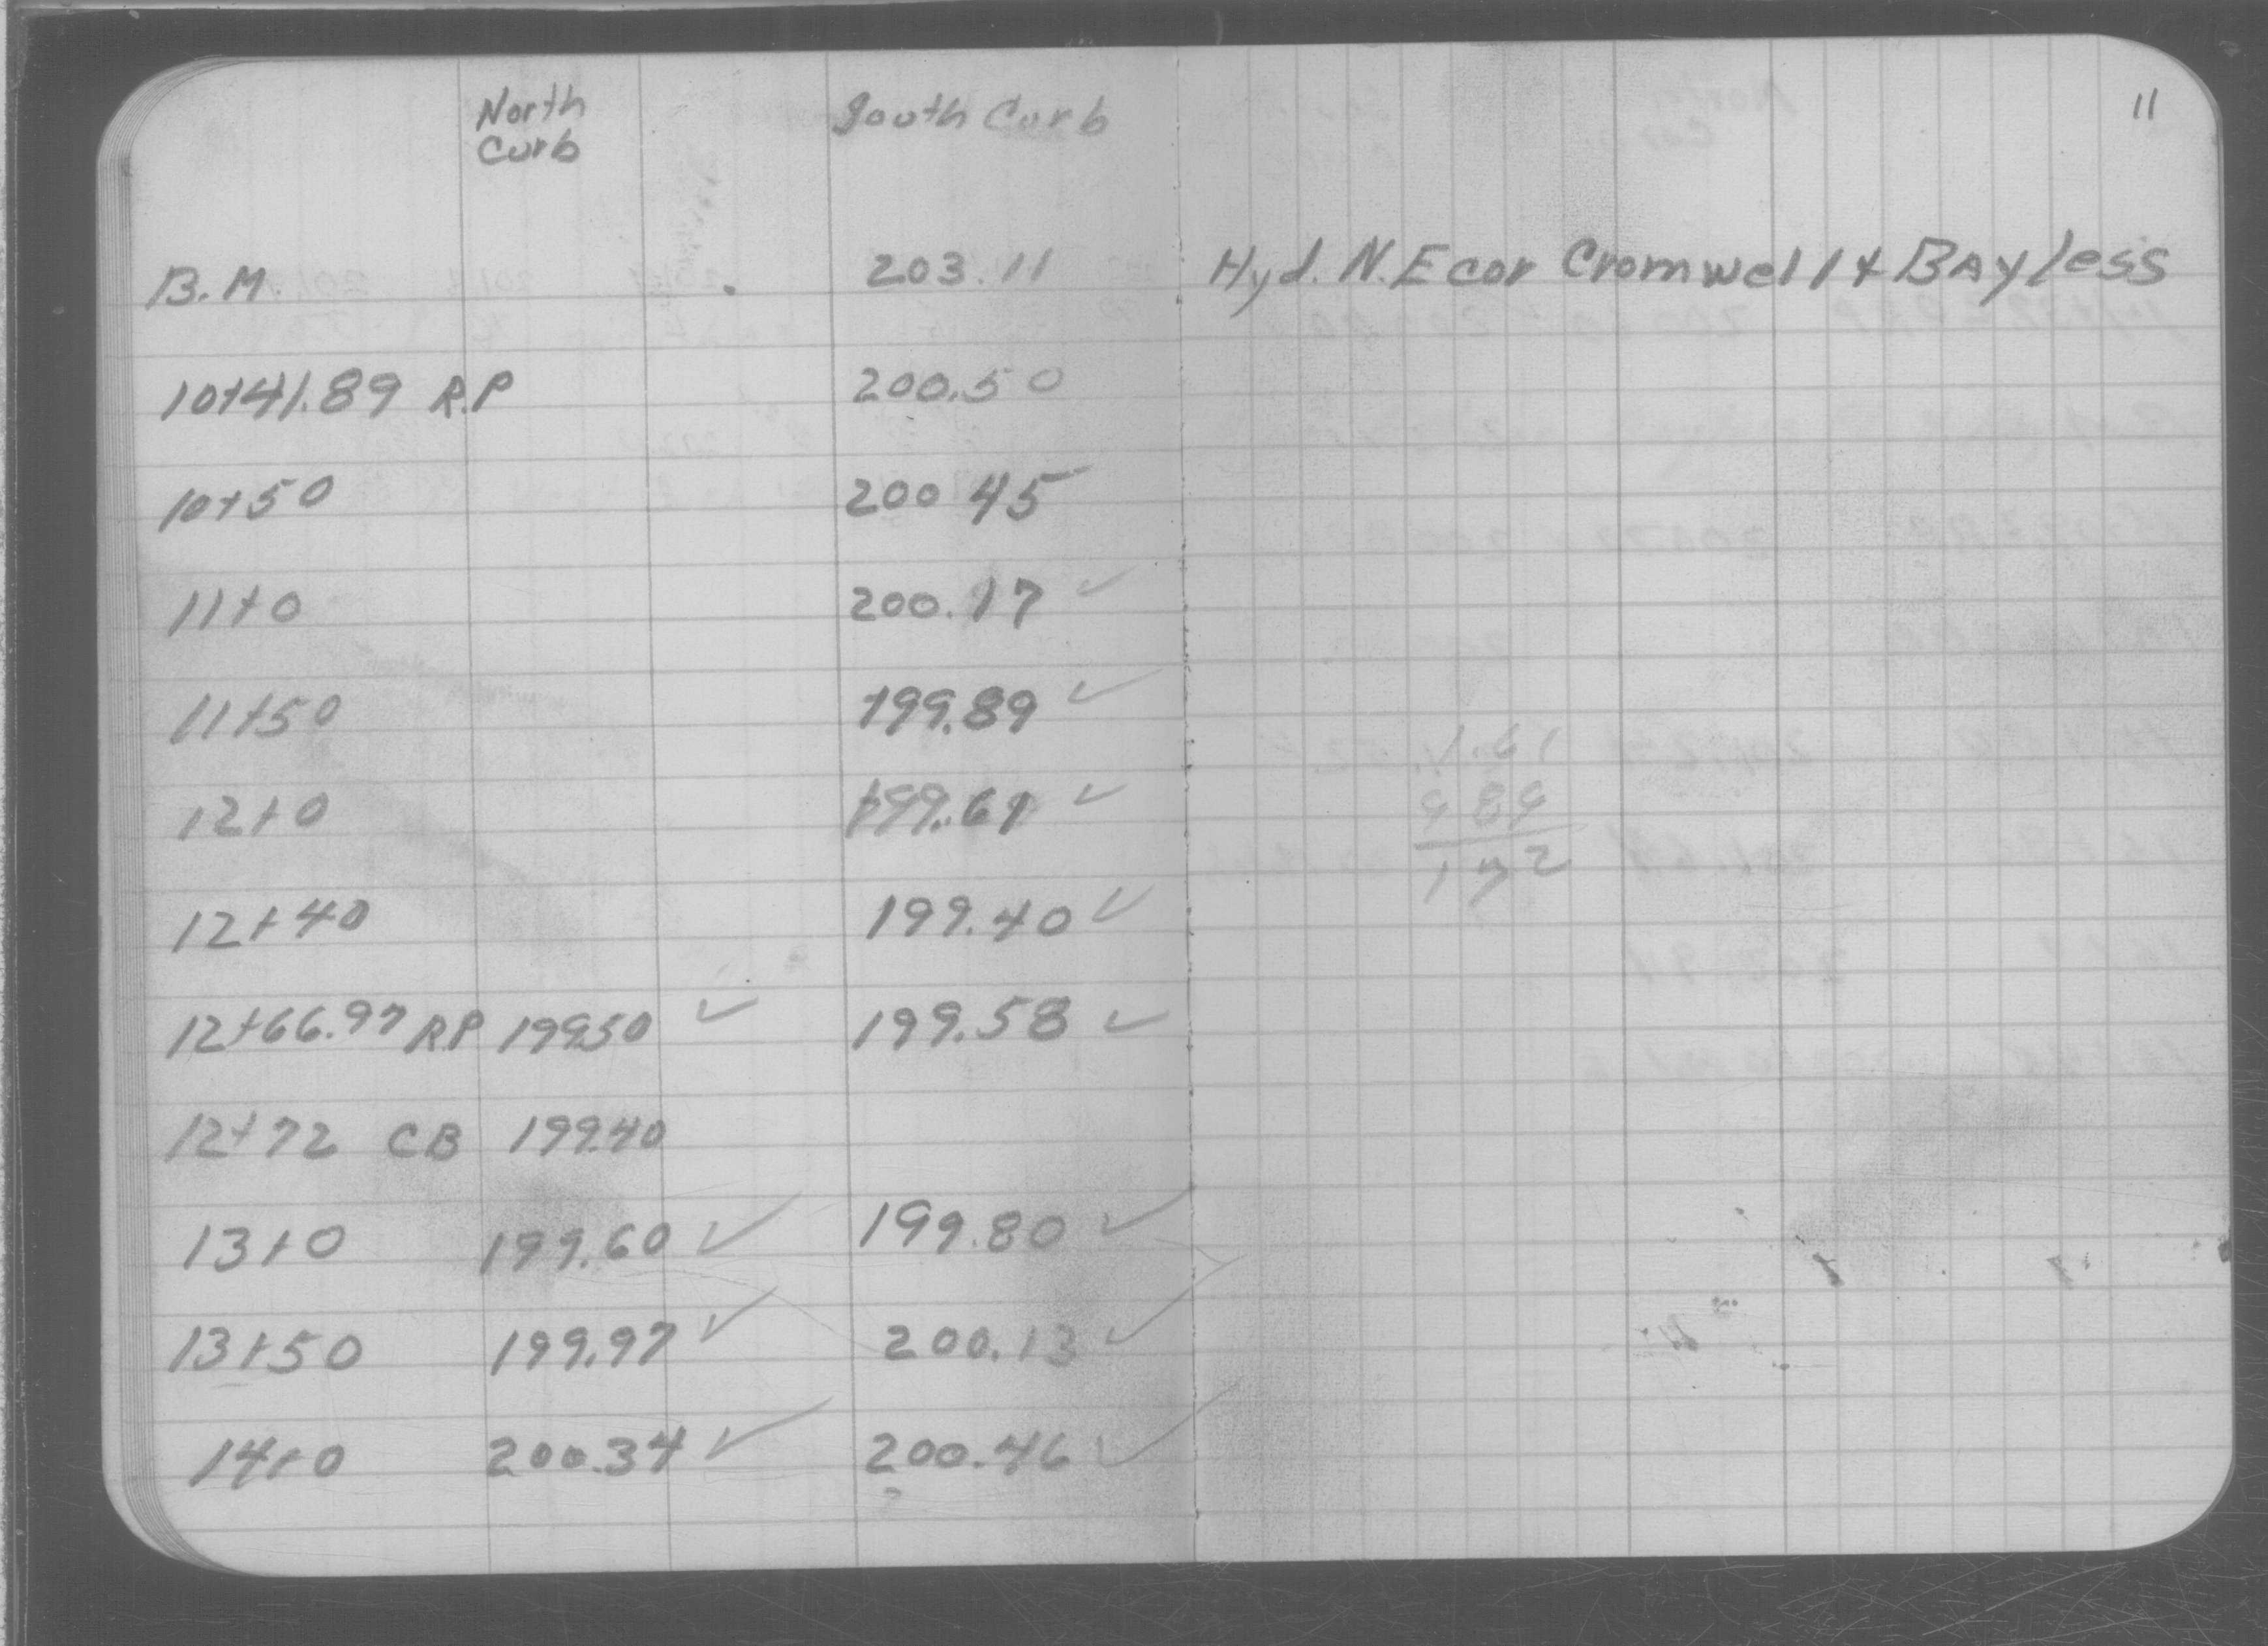 11
North
Curb
South Curb
B.M. 203.11 Hyd. N.E cor Cromwell + Bayless
10+41.89 R.P 200.50
10+50 200 45
11+0 200.17 ✓
11+50 199.89 ✓
12+0 199.61 ✓
12+40 199.40 ✓
12+66.97 R.P 199.50 ✓ 199.58 ✓
12+72 CB 199.40
13+0 199.60 ✓ 199.80 ✓
13+50 199.97 ✓ 200.13 ✓
14+0 200.34 ✓ 200.46 ✓
1.61
989
172